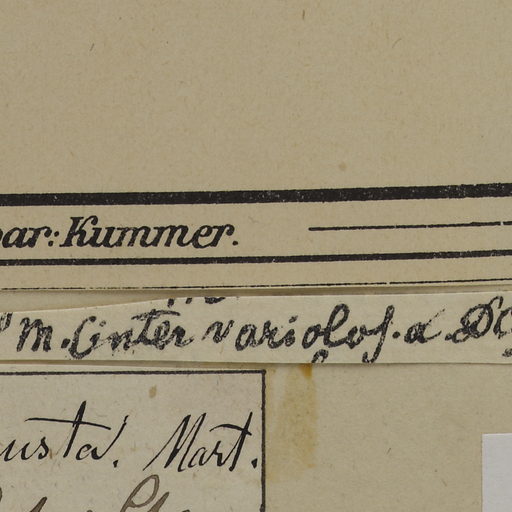 par: Kummer.
m. inter variolos. a.
usta. Mart.